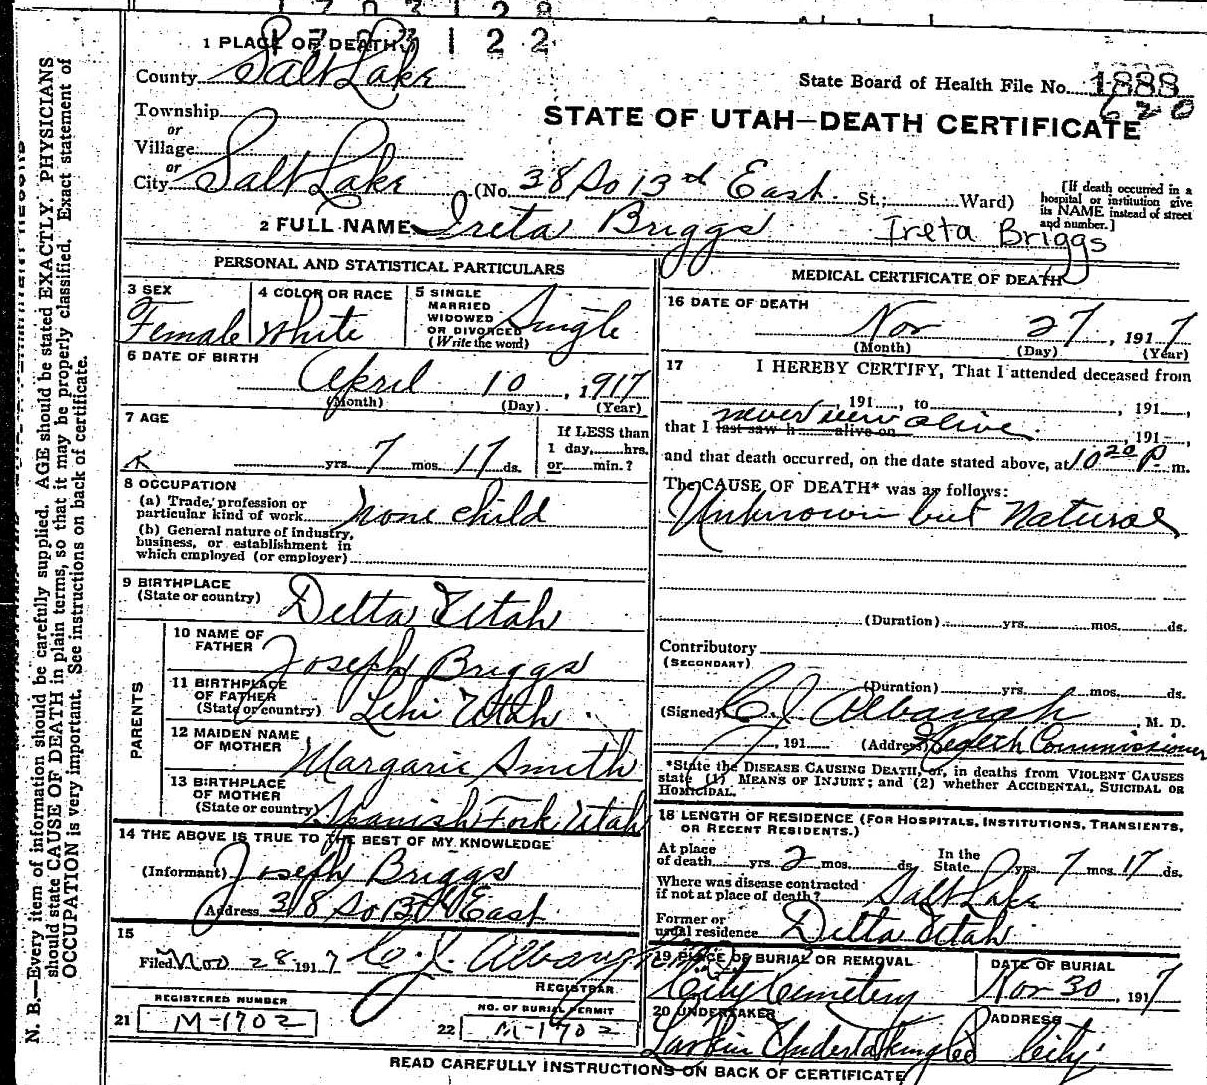 1 PLACE OF DEATH
County Salt Lake
State Board of Health File No. 1888
620
Township
or
Village
STATE OF UTAH—DEATH CERTIFICATE
or
City Salt Lake (No. 38 So 13th East St.; Ward)
[If death occurred in a hospital or institution give its NAME instead of street and number.]
2 FULL NAME Ireta Briggs
Ireta Briggs
PERSONAL AND STATISTICAL PARTICULARS
3 SEX
Female
4 COLOR OR RACE
White
5 SINGLE
MARRIED
WIDOWED
OR DIVORCED
(Write the word)
Single
6 DATE OF BIRTH
April 10, 1917
(Month) (Day) (Year)
7 AGE
yrs. 7 mos. 17 ds.
If LESS than
1 day, hrs.
or min.?
8 OCCUPATION
(a) Trade, profession or
particular kind of work none child
(b) General nature of industry,
business, or establishment in
which employed (or employer)
9 BIRTHPLACE
(State or country) Delta Utah
PARENTS
10 NAME OF
FATHER Joseph Briggs
11 BIRTHPLACE
OF FATHER
(State or country) Lehi Utah
12 MAIDEN NAME
OF MOTHER Margarie Smith
13 BIRTHPLACE
OF MOTHER
(State or country) Spanish Fork Utah
14 THE ABOVE IS TRUE TO THE BEST OF MY KNOWLEDGE
(Informant) Joseph Briggs
Address 38 So 13th East
15
Filed Nov 28 1917 C. J. Albaugh
REGISTRAR
REGISTERED NUMBER
21 M-1702
NO. OF BURIAL PERMIT
22 M-1702
MEDICAL CERTIFICATE OF DEATH
16 DATE OF DEATH
Nov 27, 1917
(Month) (Day) (Year)
17 I HEREBY CERTIFY, That I attended deceased from
, 191 , to , 191 ,
never seen alive
that I last saw h alive on , 191 ,
and that death occurred, on the date stated above, at 10 20 P. m.
The CAUSE OF DEATH* was as follows:
Unknown but Natural
(Duration) yrs. mos. ds.
Contributory
(SECONDARY)
(Duration) yrs. mos. ds.
(Signed) C J Albaugh, M. D.
, 191 (Address) Health Commissioner
*State the DISEASE CAUSING DEATH, or, in deaths from VIOLENT CAUSES
state (1) MEANS OF INJURY; and (2) whether ACCIDENTAL, SUICIDAL OR
HOMICIDAL.
18 LENGTH OF RESIDENCE (FOR HOSPITALS, INSTITUTIONS, TRANSIENTS,
OR RECENT RESIDENTS.)
At place
of death yrs. 2 mos. ds. In the
State yrs. 7 mos. 17 ds.
Where was disease contracted
if not at place of death? Salt Lake
Former or
usual residence Delta Utah
19 PLACE OF BURIAL OR REMOVAL
City Cemetery
DATE OF BURIAL
Nov 30, 1917
20 UNDERTAKER
Larkin Undertaking Co
ADDRESS
City
READ CAREFULLY INSTRUCTIONS ON BACK OF CERTIFICATE
N. B.—Every item of information should be carefully supplied. AGE should be stated EXACTLY. PHYSICIANS
should state CAUSE OF DEATH in plain terms, so that it may be properly classified. Exact statement of
OCCUPATION is very important. See instructions on back of certificate.